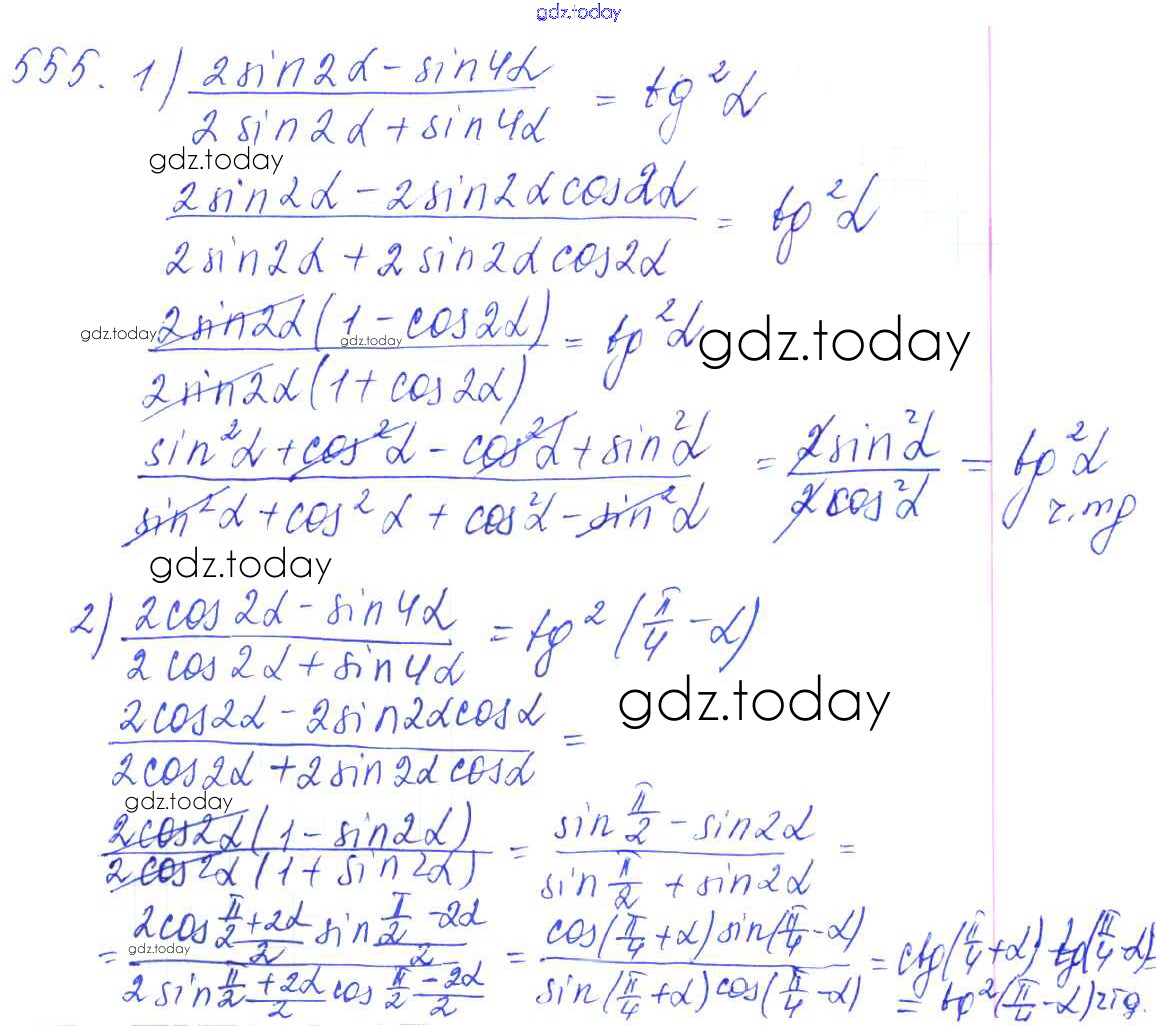 gdz.today
555. 1) (2sin2α - sin4α)/(2sin2α + sin4α) = tg²α
gdz.today
(2sin2α - 2sin2αcos2α)/(2sin2α + 2sin2αcos2α) = tg²α
gdz.today 2sin2α(1 - cos2α)/2sin2α(1 + cos2α) = tg²α gdz.today
gdz.today
(sin²α + cos²α - cos²α + sin²α)/(sin²α + cos²α + cos²α - sin²α) = 2sin²α/2cos²α = tg²α
gdz.today
2) (2cos2α - sin4α)/(2cos2α + sin4α) = tg²(π/4 - α)
gdz.today
(2cos2α - 2sin2αcosα)/(2cos2α + 2sin2αcosα) =
gdz.today
2cos2α(1 - sin2α)/2cos2α(1 + sin2α) = (sin π/2 - sin2α)/(sin π/2 + sin2α) =
= (2cos (π/2 + 2α)/2 sin (π/2 - 2α)/2)/(2sin (π/2 + 2α)/2 cos (π/2 - 2α)/2) = cos(π/4 + α) sin(π/4 - α)/sin(π/4 + α) cos(π/4 - α) = ctg(π/4 + α) tg(π/4 - α) =
gdz.today
= tg²(π/4 - α)